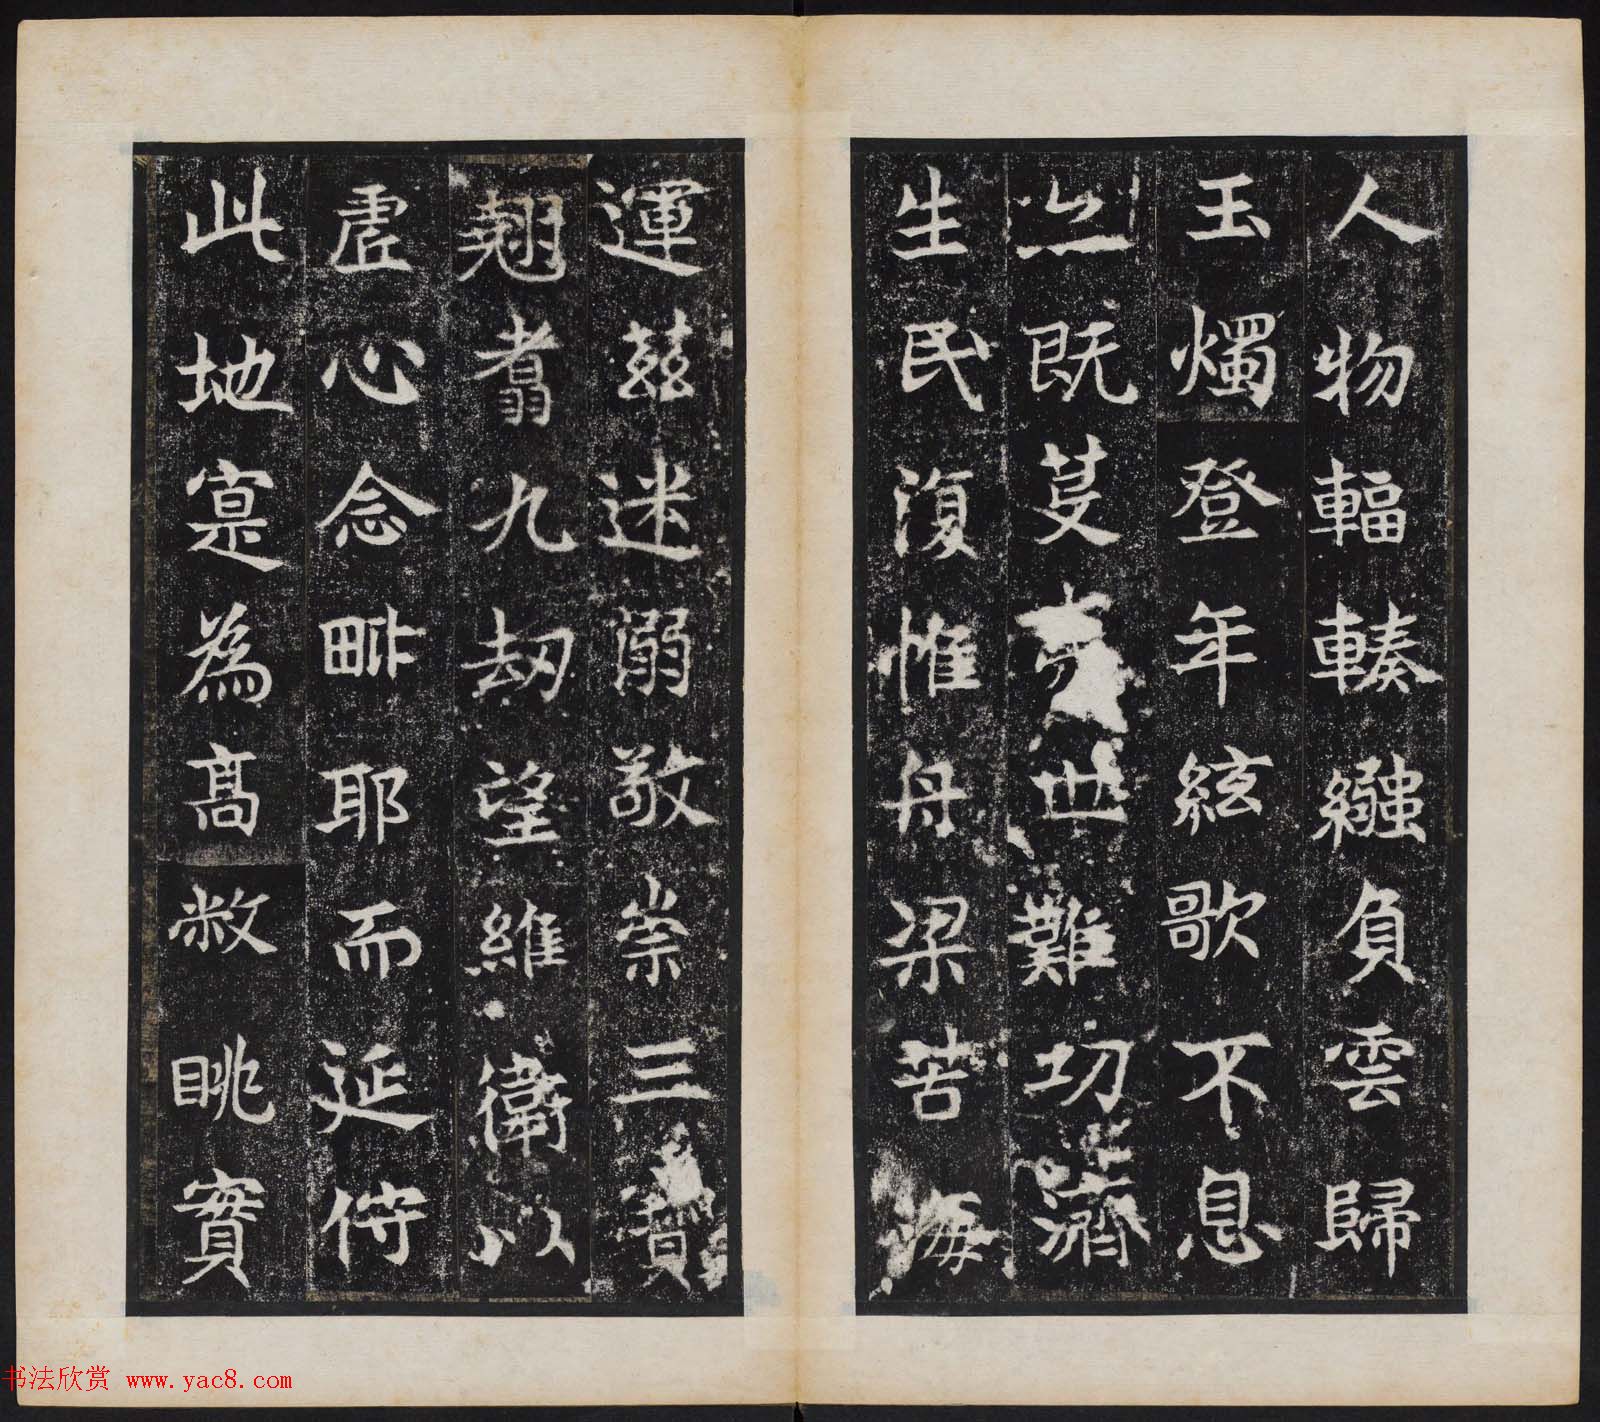 人物輻輳繦負雲歸
玉燭登年絃歌不息
公既芟世難功濟
生民復惟舟梁苦海
運茲迷溺敬崇三寶
翹翥九劫望維衛以
虛心念毗耶而延佇
此地寔為高敞眺實
书法欣赏 www.yac8.com